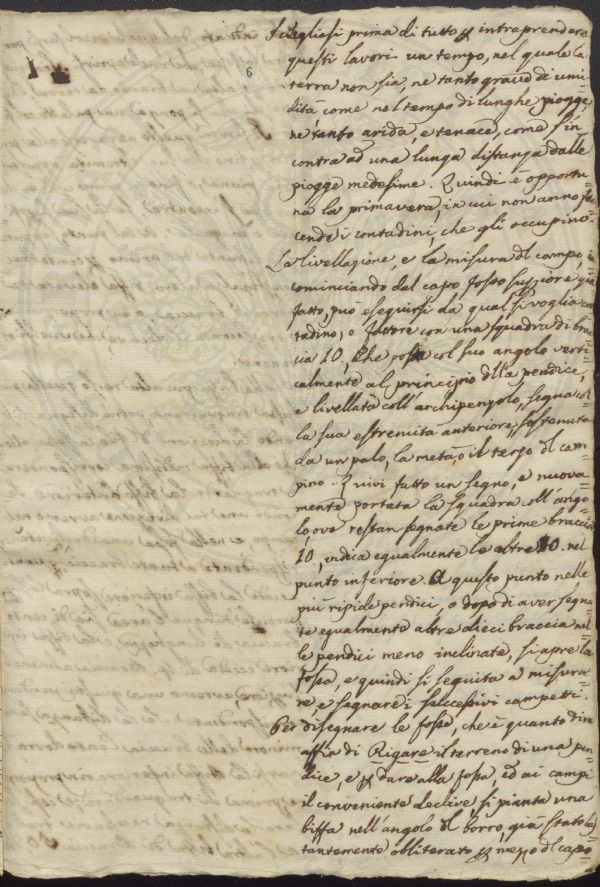 1
6
Scegliesi prima di tutto p intraprendere
questi lavori un tempo, nel quale la
terra non sia, ne tanto grave di umi=
dità, come nel tempo di lunghe piogge
ne tanto arida, e tenace, come s'in=
contra ad una lunga distanza dalle
piogge medesime. Quindi è opportu=
na la primavera, in cui non anno fac=
cende i contadini, che gli occupino.
La livellazione, e la misura dl campo in
cominciando dal capo fosso supiore già
fatto, può eseguirsi da qual si voglia con
tadino, o fattore con una squadra di brac
cia 10, Che posta col suo angolo verti=
calmente al principio dlla pendice,
e livellata coll'archipenzolo, segna col
la sua estremità anteriore, sostenuta
da un palo, la metà, o il terzo dl cam=
pino. Quivi fatto un segno, e nuova=
mente portata la squadra coll'ango=
lo, ove restan segnate le prime braccia
10, indica egualmente le altre 10. nel
punto inferiore. A questo punto nelle
più ripide pendici, o dopo di aver segna=
te egualmente altre dieci braccia nel=
le pendici meno inclinate, si apre la
fossa, e quindi si seguita a misura=
re e segnare i successivi campetti.
Per disegnare le fosse, che è quanto dire
affin di Rigare il terreno di una pen=
dice, e p dare alla fossa, ed ai campi
il conveniente declive, si pianta una
biffa nell'angolo dl borro, già stato
tantemente obliterato p mezzo dl capo